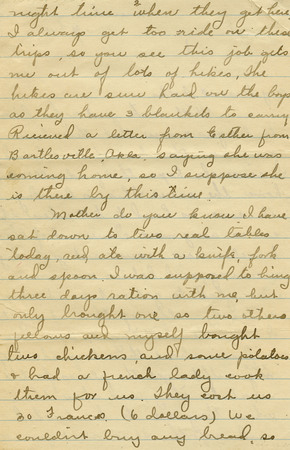 2
night time when they get here
I always get too ride on these
trips, so you see this job gets
me out of lots of hikes, The
hikes are sure hard on the boys
as they have 3 blankets to carry
Recieved a letter from Esther from
Bartlesville, Okla, saying she was
coming home, so I suppose she
is there by this time.
Mother do you know I have
sat down to two real tables
today, and ate with a knife, fork
and spoon. I was supposed to bring
three days ration with me, but
only brought one so two others
fellows and myself bought
two chickens, and some potatoes
& had a french lady cook
them for us. They cost us
30 Francs. (6 dollars) We
couldn't buy any bread, so